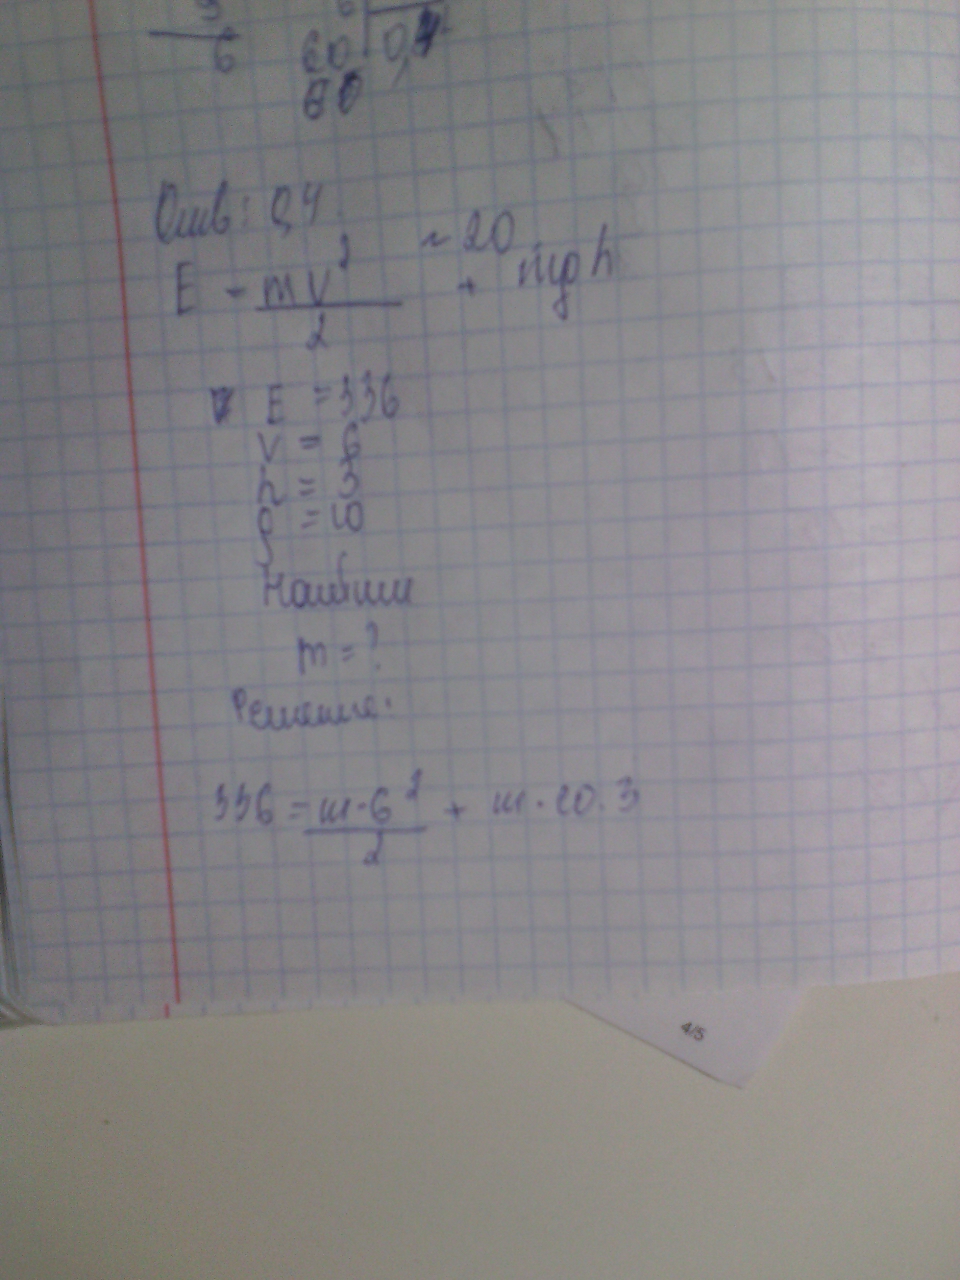 6
60 0,4
60
Отв: 0,4
~ 20
E - mv²/2 + mgh
E = 336
v = 6
h = 3
g = 10
Найти
m = ?
Решение:
336 = m·6²/2 + m·10·3
4/5